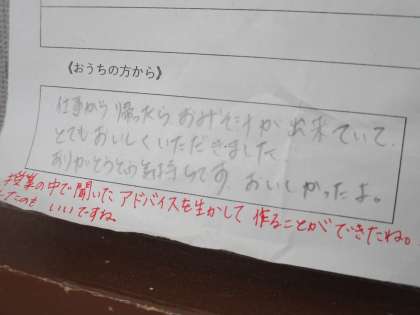 《おうちの方から》
仕事から帰ったらおみそ汁が出来ていて、
とてもおいしくいただきました
ありがとうの気持ちです。おいしかったよ。
授業の中で聞いたアドバイスを生かして作ることができたね。
したのも いいですね。